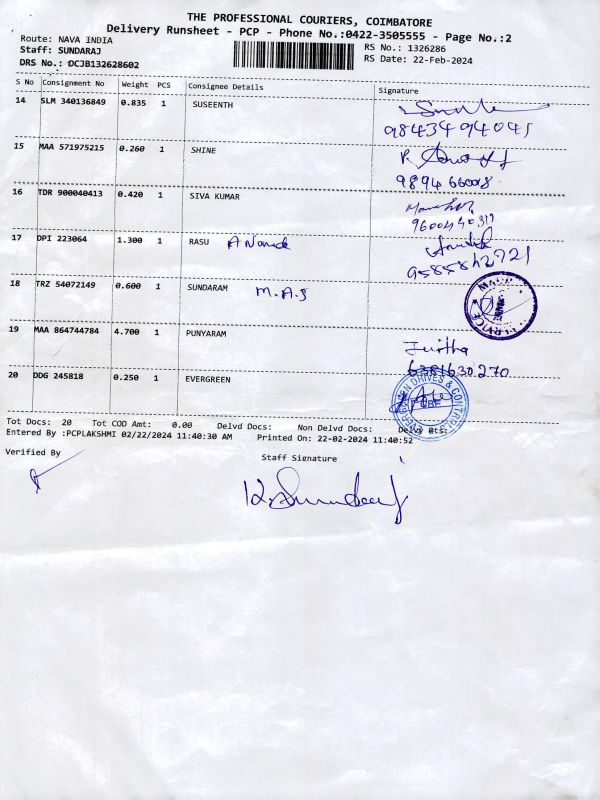 THE PROFESSIONAL COURIERS, COIMBATORE
Delivery Runsheet - PCP - Phone No.:0422-3505555 - Page No.:2
Route: NAVA INDIA
RS No.: 1326286
Staff: SUNDARAJ
RS Date: 22-Feb-2024
DRS No.: DCJB132628602
S No Consignment No Weight PCS Consignee Details Signature
14 SLM 340136849 0.835 1 SUSEENTH
9843494045
15 MAA 571975215 0.260 1 SHINE
9894466008
16 TDR 900040413 0.420 1 SIVA KUMAR
17 DPI 223064 1.300 1 RASU
9585842721
18 TRZ 54072149 0.600 1 SUNDARAM M.A.S
19 MAA 864744784 4.700 1 PUNYARAM
6381630270
20 DDG 245818 0.250 1 EVERGREEN
EVERGREEN DRIVES & CONTROLS
CBE
Tot Docs: 20 Tot COD Amt: 0.00 Delvd Docs: Non Delvd Docs: Delvy Sts:
Entered By :PCPLAKSHMI 02/22/2024 11:40:30 AM Printed On: 22-02-2024 11:40:52
Verified By Staff Signature